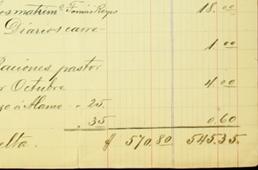 osmatrim? Tomás Reyes 18.00
Diarios carre-
1.00
Raciones pasto.
r Octubre 4.00
zo á Alamo . 25.
. 35 0,60
elta. $ 570.80 545.35.